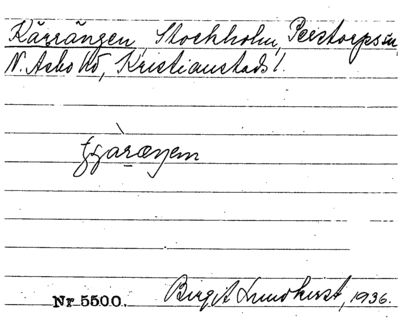 Kärrängen, Stockholm, Perstorps sn,
N. Asbo hd, Kristianstads l.
Nr 5500. Birgit Lundkvist, 1936.